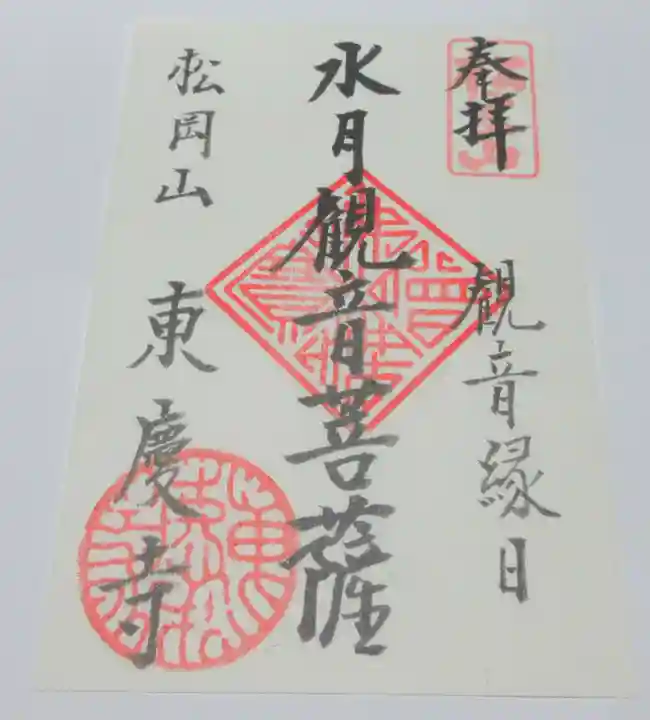 奉拝
観音縁日
水月観音菩薩
松岡山
東慶寺